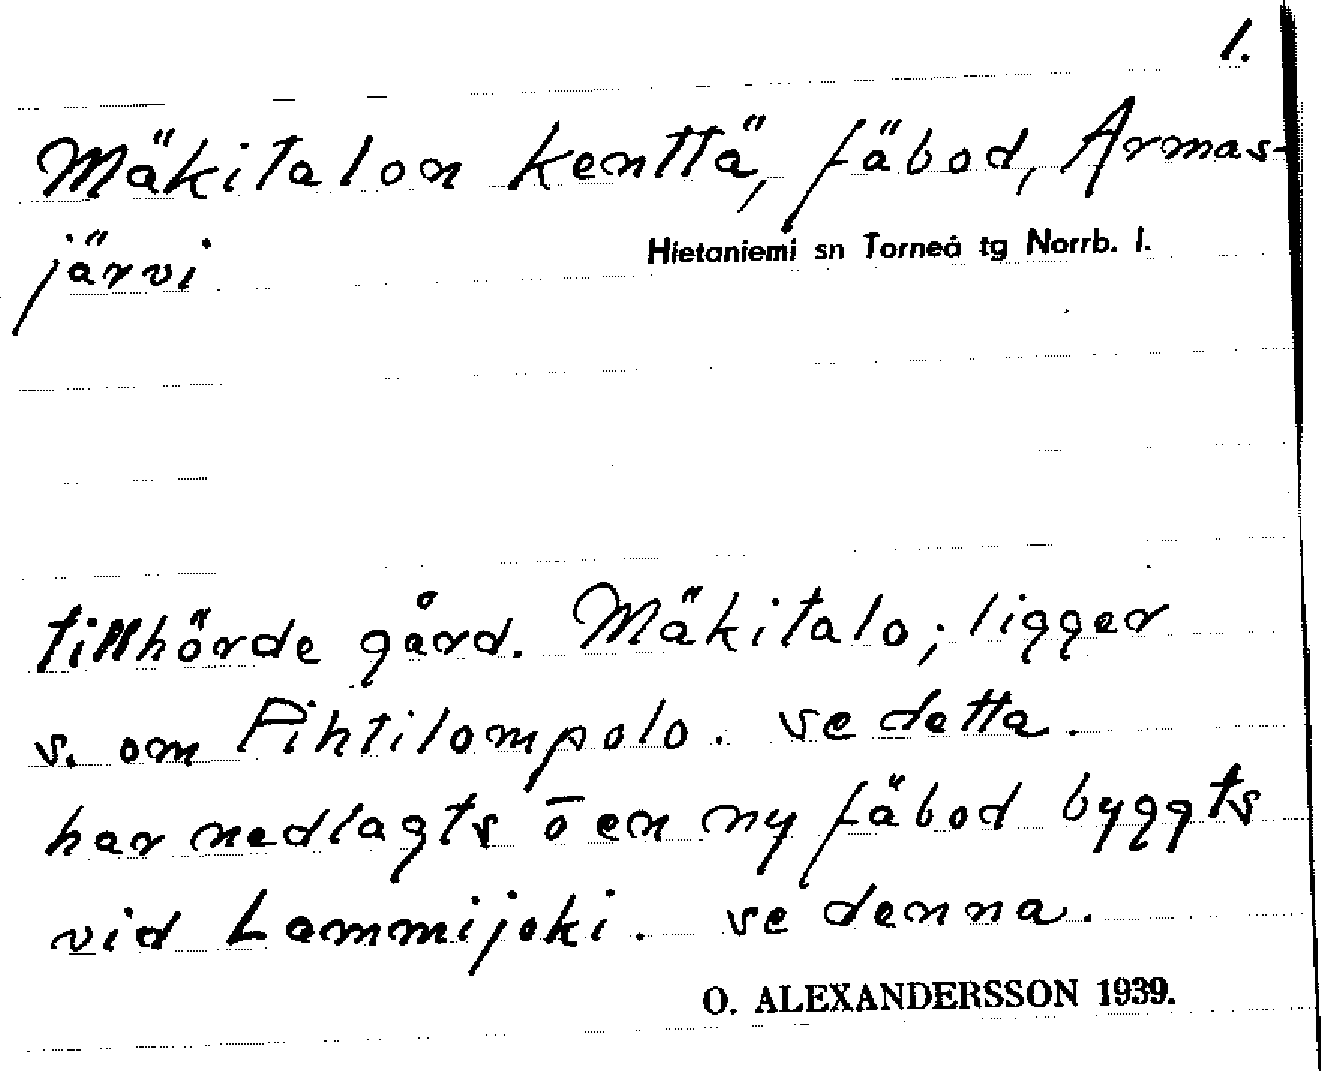 1.
Mäkitalon kenttä, fäbod, Armas-
järvi
Hietaniemi sn Torneå tg Norrb. l.
tillhörde gård. Mäkitalo; ligger
s. om Pihtilompolo. se detta.
har nedlagts o en ny fäbod byggts
vid Lammijoki. se denna.
O. ALEXANDERSSON 1939.